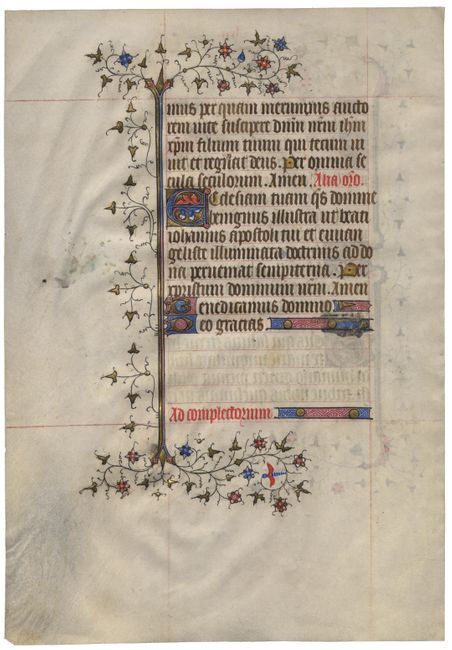 mus per quam meruimus aucto
rem uite suscipere dnm nrm ihm
xpm filium tuum qui tecum ui
uit et regnat deus. Per omnia se
cula seculorum. Amen. Alia oro.
Ecclesiam tuam qs domine
benignus illustra ut beati
iohannis apostoli tui et euuan
geliste illuminata doctrinis ad do
na perueniat sempiterna. Per
xpristum dominum nrm. Amen
Benedicamus domino
Deo gracias
Ad complectorium.